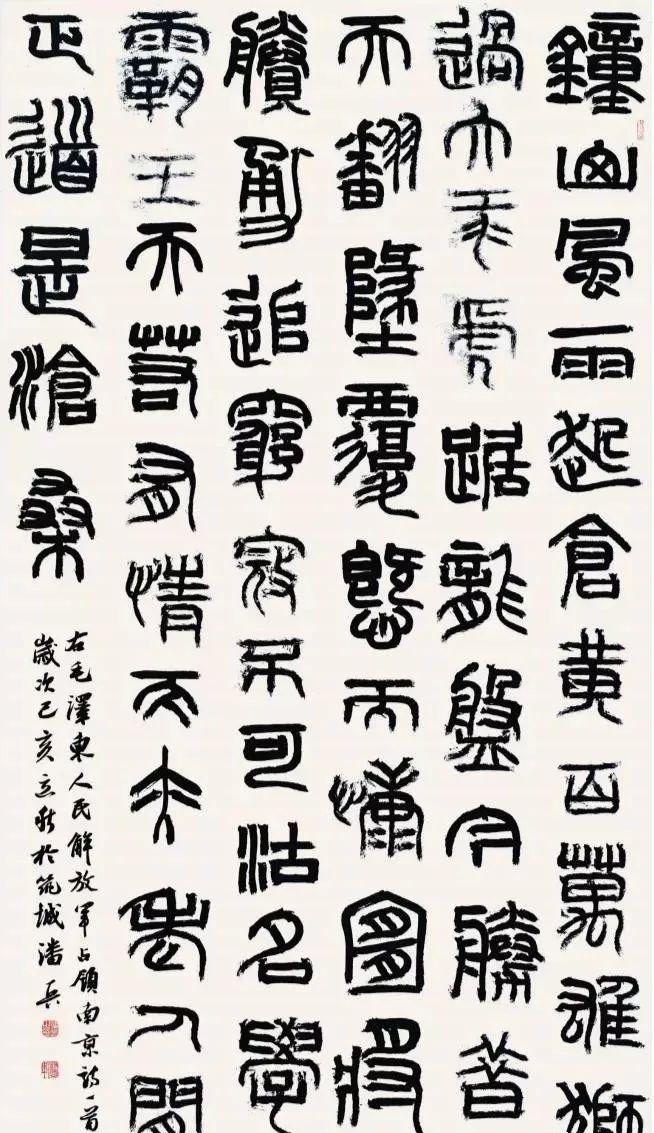 鐘山風雨起倉黃百萬雄獅
過大江虎踞龍盤今勝昔
天翻墬覆慨而慷宜將
賸勇追窮寇不可沽名學
霸王天若有情天亦老人間
正道是滄桑
右毛澤東人民解放軍占領南京詩一首
歲次己亥立秋於筑城潘兵